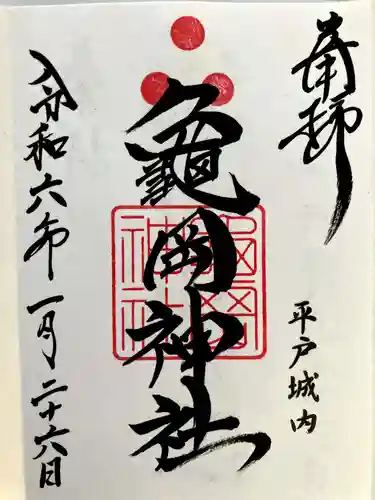 奉拝
平戸城内
龜岡神社
令和六年一月二十六日